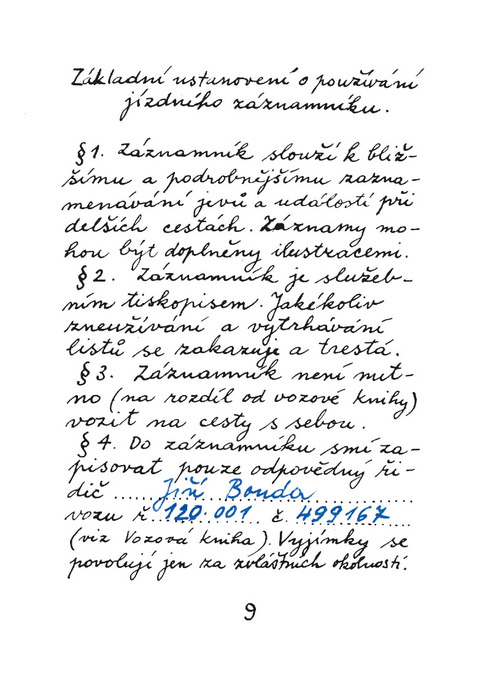 Základní ustanovení o používání
jízdního záznamníku.
§ 1. Záznamník slouží k bliž-
šímu a podrobnějšímu zazna-
menávání jevů a událostí při
delších cestách. Záznamy mo-
hou být doplněny ilustracemi.
§ 2. Záznamník je služeb-
ním tiskopisem. Jakékoliv
zneužívání a vytrhávání
listů se zakazuje a trestá.
§ 3. Záznamník není nut-
no (na rozdíl od vozové knihy)
vozit na cesty s sebou.
§ 4. Do záznamníku smí za-
pisovat pouze odpovědný ři-
dič ...... Jiří Bouda ............
vozu ř. 120 001 č. 499167
(viz Vozová kniha). Vyjímky se
povolují jen za zvláštních okolností.
9